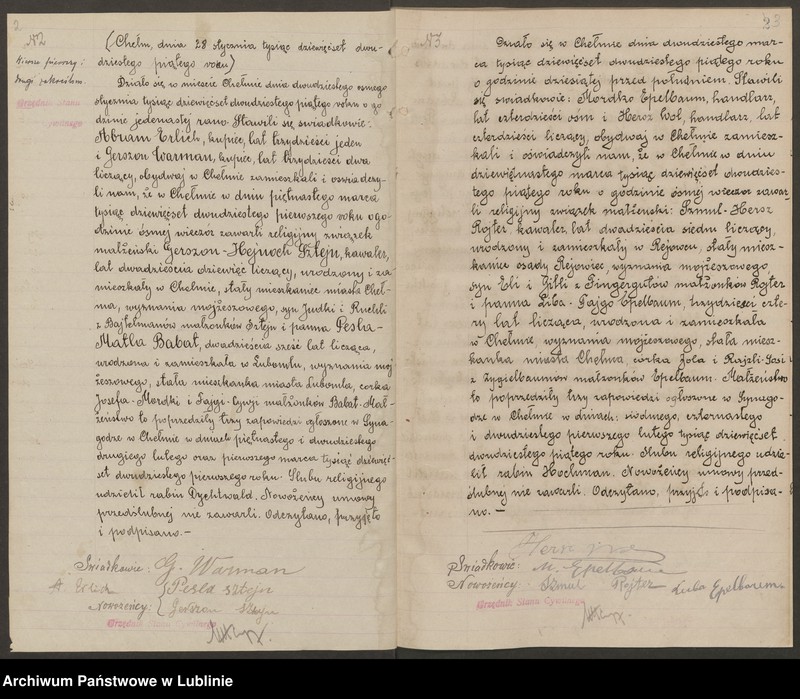 2
№2
Wiersz pierwszy i
drugi zakreślam.
Urzędnik Stanu
(Chełm, dnia 28 stycznia tysiąc dziewięćset dwu-
dziestego piątego roku)
Działo się w mieście Chełmie dnia dwudziestego ósmego
stycznia tysiąc dziewięćset dwudziestego piątego roku o go
dzinie jedenastej rano. Stawili się świadkowie:
Abram Erlich, kupiec, lat trzydzieści jeden
i Gerszon Warman, kupiec, lat trzydzieści dwa
liczący, obydwaj w Chełmie zamieszkali i oświadczy-
li nam, że w Chełmie w dniu piętnastego marca
tysiąc dziewięćset dwudziestego pierwszego roku o go
dzinie ósmej wieczór zawarli religijny związek
małżeński Gerszon-Hejnoch Sztejn, kawaler,
lat dwadzieścia dziewięć liczący, urodzony i za-
mieszkały w Chełmie, stały mieszkaniec miasta Cheł-
ma, wyznania mojżeszowego, syn Judki i Ruchli
z Bajtelmanów małżonków Sztejn i panna Pesla-
Matla Babat, dwadzieścia sześć lat licząca,
urodzona i zamieszkała w Lubomlu, wyznania moj
żeszowego, stała mieszkanka miasta Lubomla, córka
Josefa-Mordki i Fajgi-Cywji małżonków Babat. Mał-
żeństwo to poprzedziły trzy zapowiedzi ogłoszone w Syna-
godze w Chełmie w dniach piętnastego i dwudziestego
drugiego lutego oraz pierwszego marca tysiąc dziewięć-
set dwudziestego pierwszego roku. Ślubu religijnego
udzielił rabin Dychtwald. Nowożeńcy umowy
przedślubnej nie zawarli. Odczytano, przyjęto
i podpisano.-
Świadkowie: G. Warman
A. Erlich Pesla Sztejn
Nowożeńcy: Gerszon Sztejn
Urzędnik Stanu Cywilnego
23
№3
Działo się w Chełmie dnia dwudziestego mar-
ca tysiąc dziewięćset dwudziestego piątego roku
o godzinie dziesiątej przed południem. Stawili
się świadkowie: Mordko Epelbaum, handlarz,
lat czterdzieści ośm i Hersz Wol, handlarz, lat
czterdzieści liczący, obydwaj w Chełmie zamiesz-
kali i oświadczyli nam, że w Chełmie w dniu
dziewiętnastego marca tysiąc dziewięćset dwudzies-
tego piątego roku o godzinie ósmej wieczór zawar-
li religijny związek małżeński: Szmul-Hersz
Rojter, kawaler, lat dwadzieścia siedm liczący,
urodzony i zamieszkały w Rejowcu, stały miesz-
kaniec osady Rejowiec, wyznania mojżeszowego,
syn Eli i Gitli z Fingergutów małżonków Rojter
i panna Liba-Fajga Epelbaum, trzydzieści czte-
ry lat licząca, urodzona i zamieszkała
w Chełmie, wyznania mojżeszowego, stała miesz-
kanka miasta Chełma, córka Jola i Rajzli-Sosi
z Zygielbaumów małżonków Epelbaum. Małżeństwo
to poprzedziły trzy zapowiedzi ogłoszone w Synago-
dze w Chełmie w dniach: siódmego, czternastego
i dwudziestego pierwszego lutego tysiąc dziewięćset
dwudziestego piątego roku. Ślubu religijnego udzie-
lił rabin Hochman. Nowożeńcy umowy przed-
ślubnej nie zawarli. Odczytano, przyjęto i podpisa-
no.-
Świadkowie: M. Epelbaum
Nowożeńcy: Szmul Rojter Luba Epelbaum
Urzędnik Stanu Cywilnego
Archiwum Państwowe w Lublinie